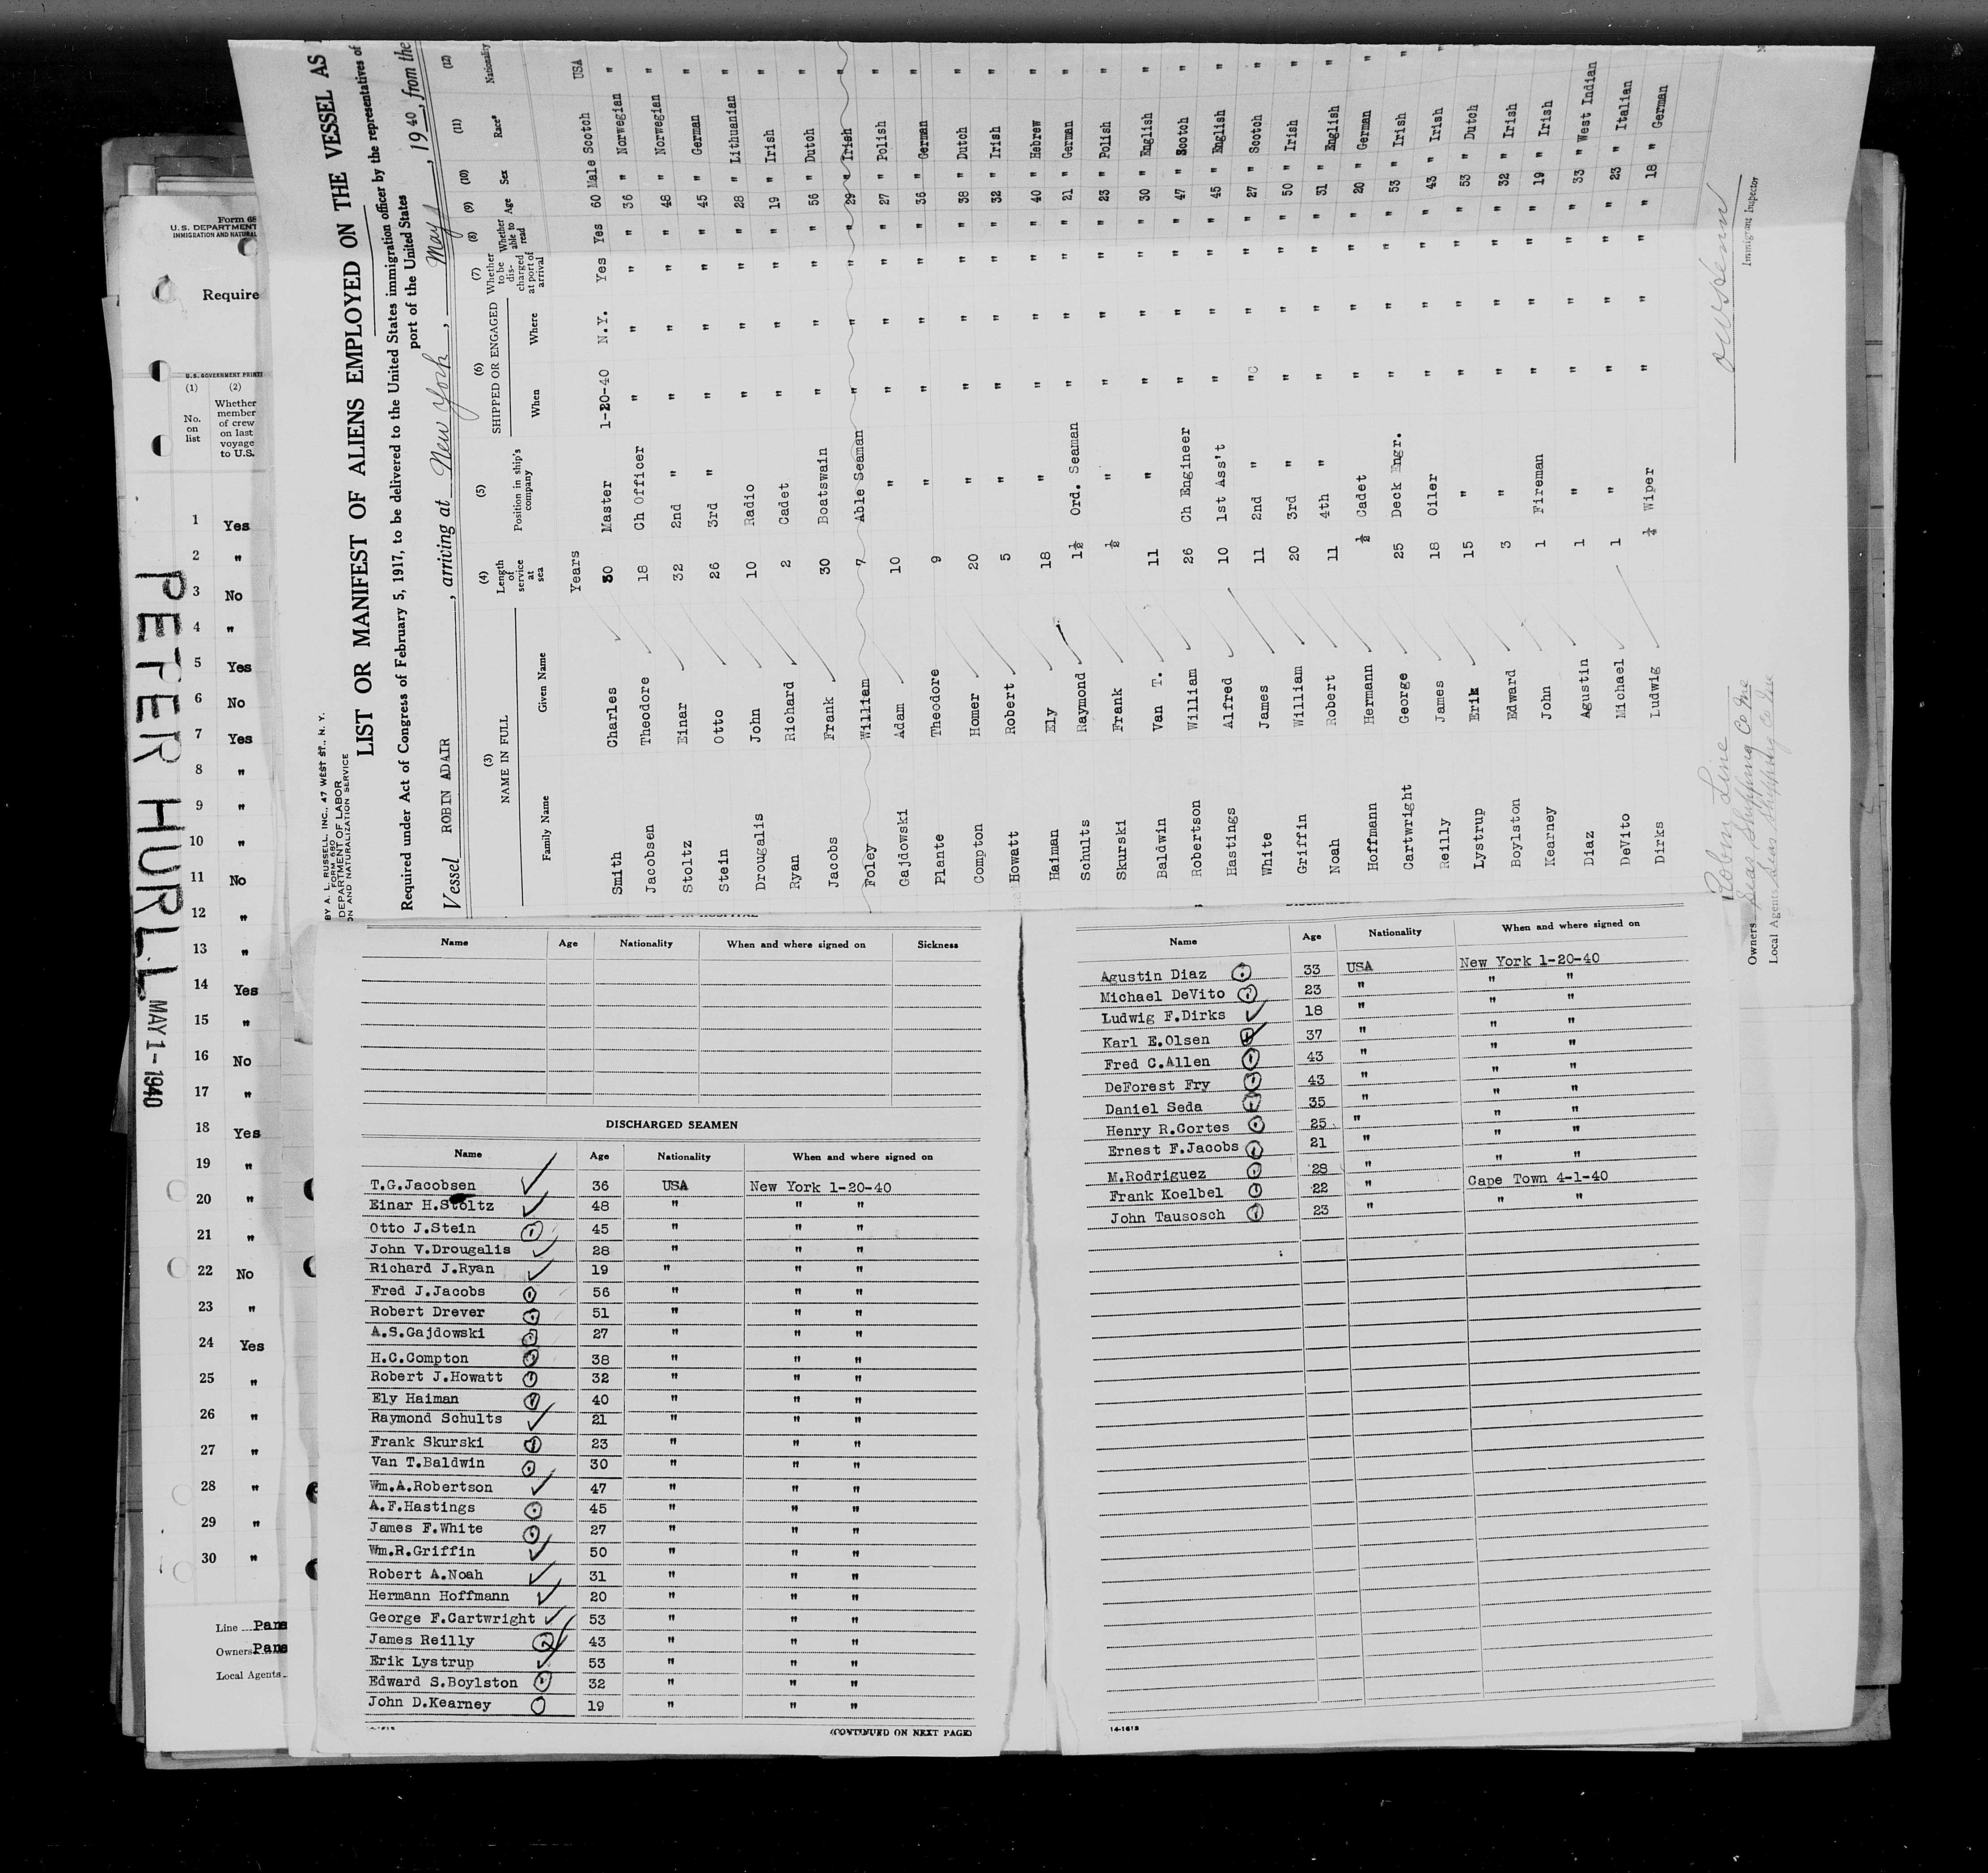 Form 68
U.S. DEPARTMENT
IMMIGRATION AND NATURAL
Require
U.S. GOVERNMENT PRINTI
(1) (2)
No. on list
Whether member of crew on last voyage to U.S.
1 Yes
2 "
3 No
4 "
5 Yes
6 No
7 Yes
8 "
9 "
10 "
11 No
12 "
13 "
14 Yes
15 "
16 No
17 "
18 Yes
19 "
20 "
21 "
22 No
23 "
24 Yes
25 "
26 "
27 "
28 "
29 "
30 "
Line Pana
Owners Pana
Local Agents
PETER HURLL
MAY 1 - 1940
BY A. L. RUSSELL, INC., 47 WEST ST., N. Y.
FORM 680
DEPARTMENT OF LABOR
ON AND NATURALIZATION SERVICE
LIST OR MANIFEST OF ALIENS EMPLOYED ON THE VESSEL AS
Required under Act of Congress of February 5, 1917, to be delivered to the United States immigration officer by the representatives of
port of the United States
Vessel ROBIN ADAIR, arriving at New York, May, 1940, from the
(3) NAME IN FULL
Family Name Given Name
(4) Length of service at sea
(5) Position in ship's company
(6) SHIPPED OR ENGAGED
When Where
(7) Whether to be discharged at port of arrival
(8) Whether able to read
(9) Age
(10) Sex
(11) Race*
(12) Nationality
Years
Smith Charles 30 Master 1-20-40 N.Y. Yes Yes 60 Male Scotch USA
Jacobsen Theodore 18 Ch Officer " " " " 36 " Norwegian "
Stoltz Einar 32 2nd " " " " " 48 " Norwegian "
Stein Otto 26 3rd " " " " " 45 " German "
Drougalis John 10 Radio " " " " 28 " Lithuanian "
Ryan Richard 2 Cadet " " " " 19 " Irish "
Jacobs Frank 30 Boatswain " " " " 56 " Dutch "
Foley William 7 Able Seaman " " " " 29 " Irish "
Gajdowski Adam 10 " " " " " 27 " Polish "
Plante Theodore 9 " " " " " 36 " German "
Compton Homer 20 " " " " " 38 " Dutch "
Howatt Robert 5 " " " " " 32 " Irish "
Haiman Ely 18 " " " " " 40 " Hebrew "
Schults Raymond 1½ Ord. Seaman " " " " 21 " German "
Skurski Frank ½ " " " " " 23 " Polish "
Baldwin Van T. 11 " " " " " 30 " English "
Robertson William 26 Ch Engineer " " " " 47 " Scotch "
Hastings Alfred 10 1st Ass't " " " " 45 " English "
White James 11 2nd " " " " " 27 " Scotch "
Griffin William 20 3rd " " " " " 50 " Irish "
Noah Robert 11 4th " " " " " 31 " English "
Hoffmann Hermann ½ Cadet " " " " 20 " German "
Cartwright George 25 Deck Engr. " " " " 53 " Irish "
Reilly James 18 Oiler " " " " 43 " Irish "
Lystrup Erik 15 " " " " " 53 " Dutch "
Boylston Edward 3 " " " " " 32 " Irish "
Kearney John 1 Fireman " " " " 19 " Irish "
Diaz Agustin 1 " " " " " 33 " West Indian "
DeVito Michael 1 " " " " " 23 " Italian "
Dirks Ludwig ¼ Wiper " " " " 18 " German "
Immigrant Inspector
Robin Line
Owners Seas Shipping Co Inc
Local Agent Seas Shipping Co Inc
Name Age Nationality When and where signed on Sickness
DISCHARGED SEAMEN
Name Age Nationality When and where signed on
T.G.Jacobsen 36 USA New York 1-20-40
Einar H.Stoltz 48 " " "
Otto J.Stein 45 " " "
John V.Drougalis 28 " " "
Richard J.Ryan 19 " " "
Fred J.Jacobs 56 " " "
Robert Drever 51 " " "
A.S.Gajdowski 27 " " "
H.C.Compton 38 " " "
Robert J.Howatt 32 " " "
Ely Haiman 40 " " "
Raymond Schults 21 " " "
Frank Skurski 23 " " "
Van T.Baldwin 30 " " "
Wm.A.Robertson 47 " " "
A.F.Hastings 45 " " "
James F.White 27 " " "
Wm.R.Griffin 50 " " "
Robert A.Noah 31 " " "
Hermann Hoffmann 20 " " "
George F.Cartwright 53 " " "
James Reilly 43 " " "
Erik Lystrup 53 " " "
Edward S.Boylston 32 " " "
John D.Kearney 19 " " "
(CONTINUED ON NEXT PAGE)
Name Age Nationality When and where signed on
Agustin Diaz 33 USA New York 1-20-40
Michael DeVito 23 " " "
Ludwig F.Dirks 18 " " "
Karl E.Olsen 37 " " "
Fred C.Allen 43 " " "
DeForest Fry 43 " " "
Daniel Seda 35 " " "
Henry R.Cortes 25 " " "
Ernest F.Jacobs 21 " " "
M.Rodriguez 28 " " "
Frank Koelbel 22 " Cape Town 4-1-40
John Tausosch 23 " " "
14-1618